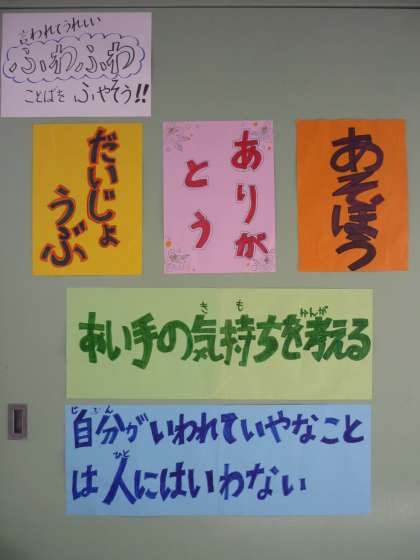 言われてうれしい
ふわふわ
ことばを ふやそう!!
だいじょ
うぶ
ありが
とう
あそぼう
き も かんが
あい手の気持ちを考える
じ ぶん
自分がいわれていやなこと
ひと
は人にはいわない